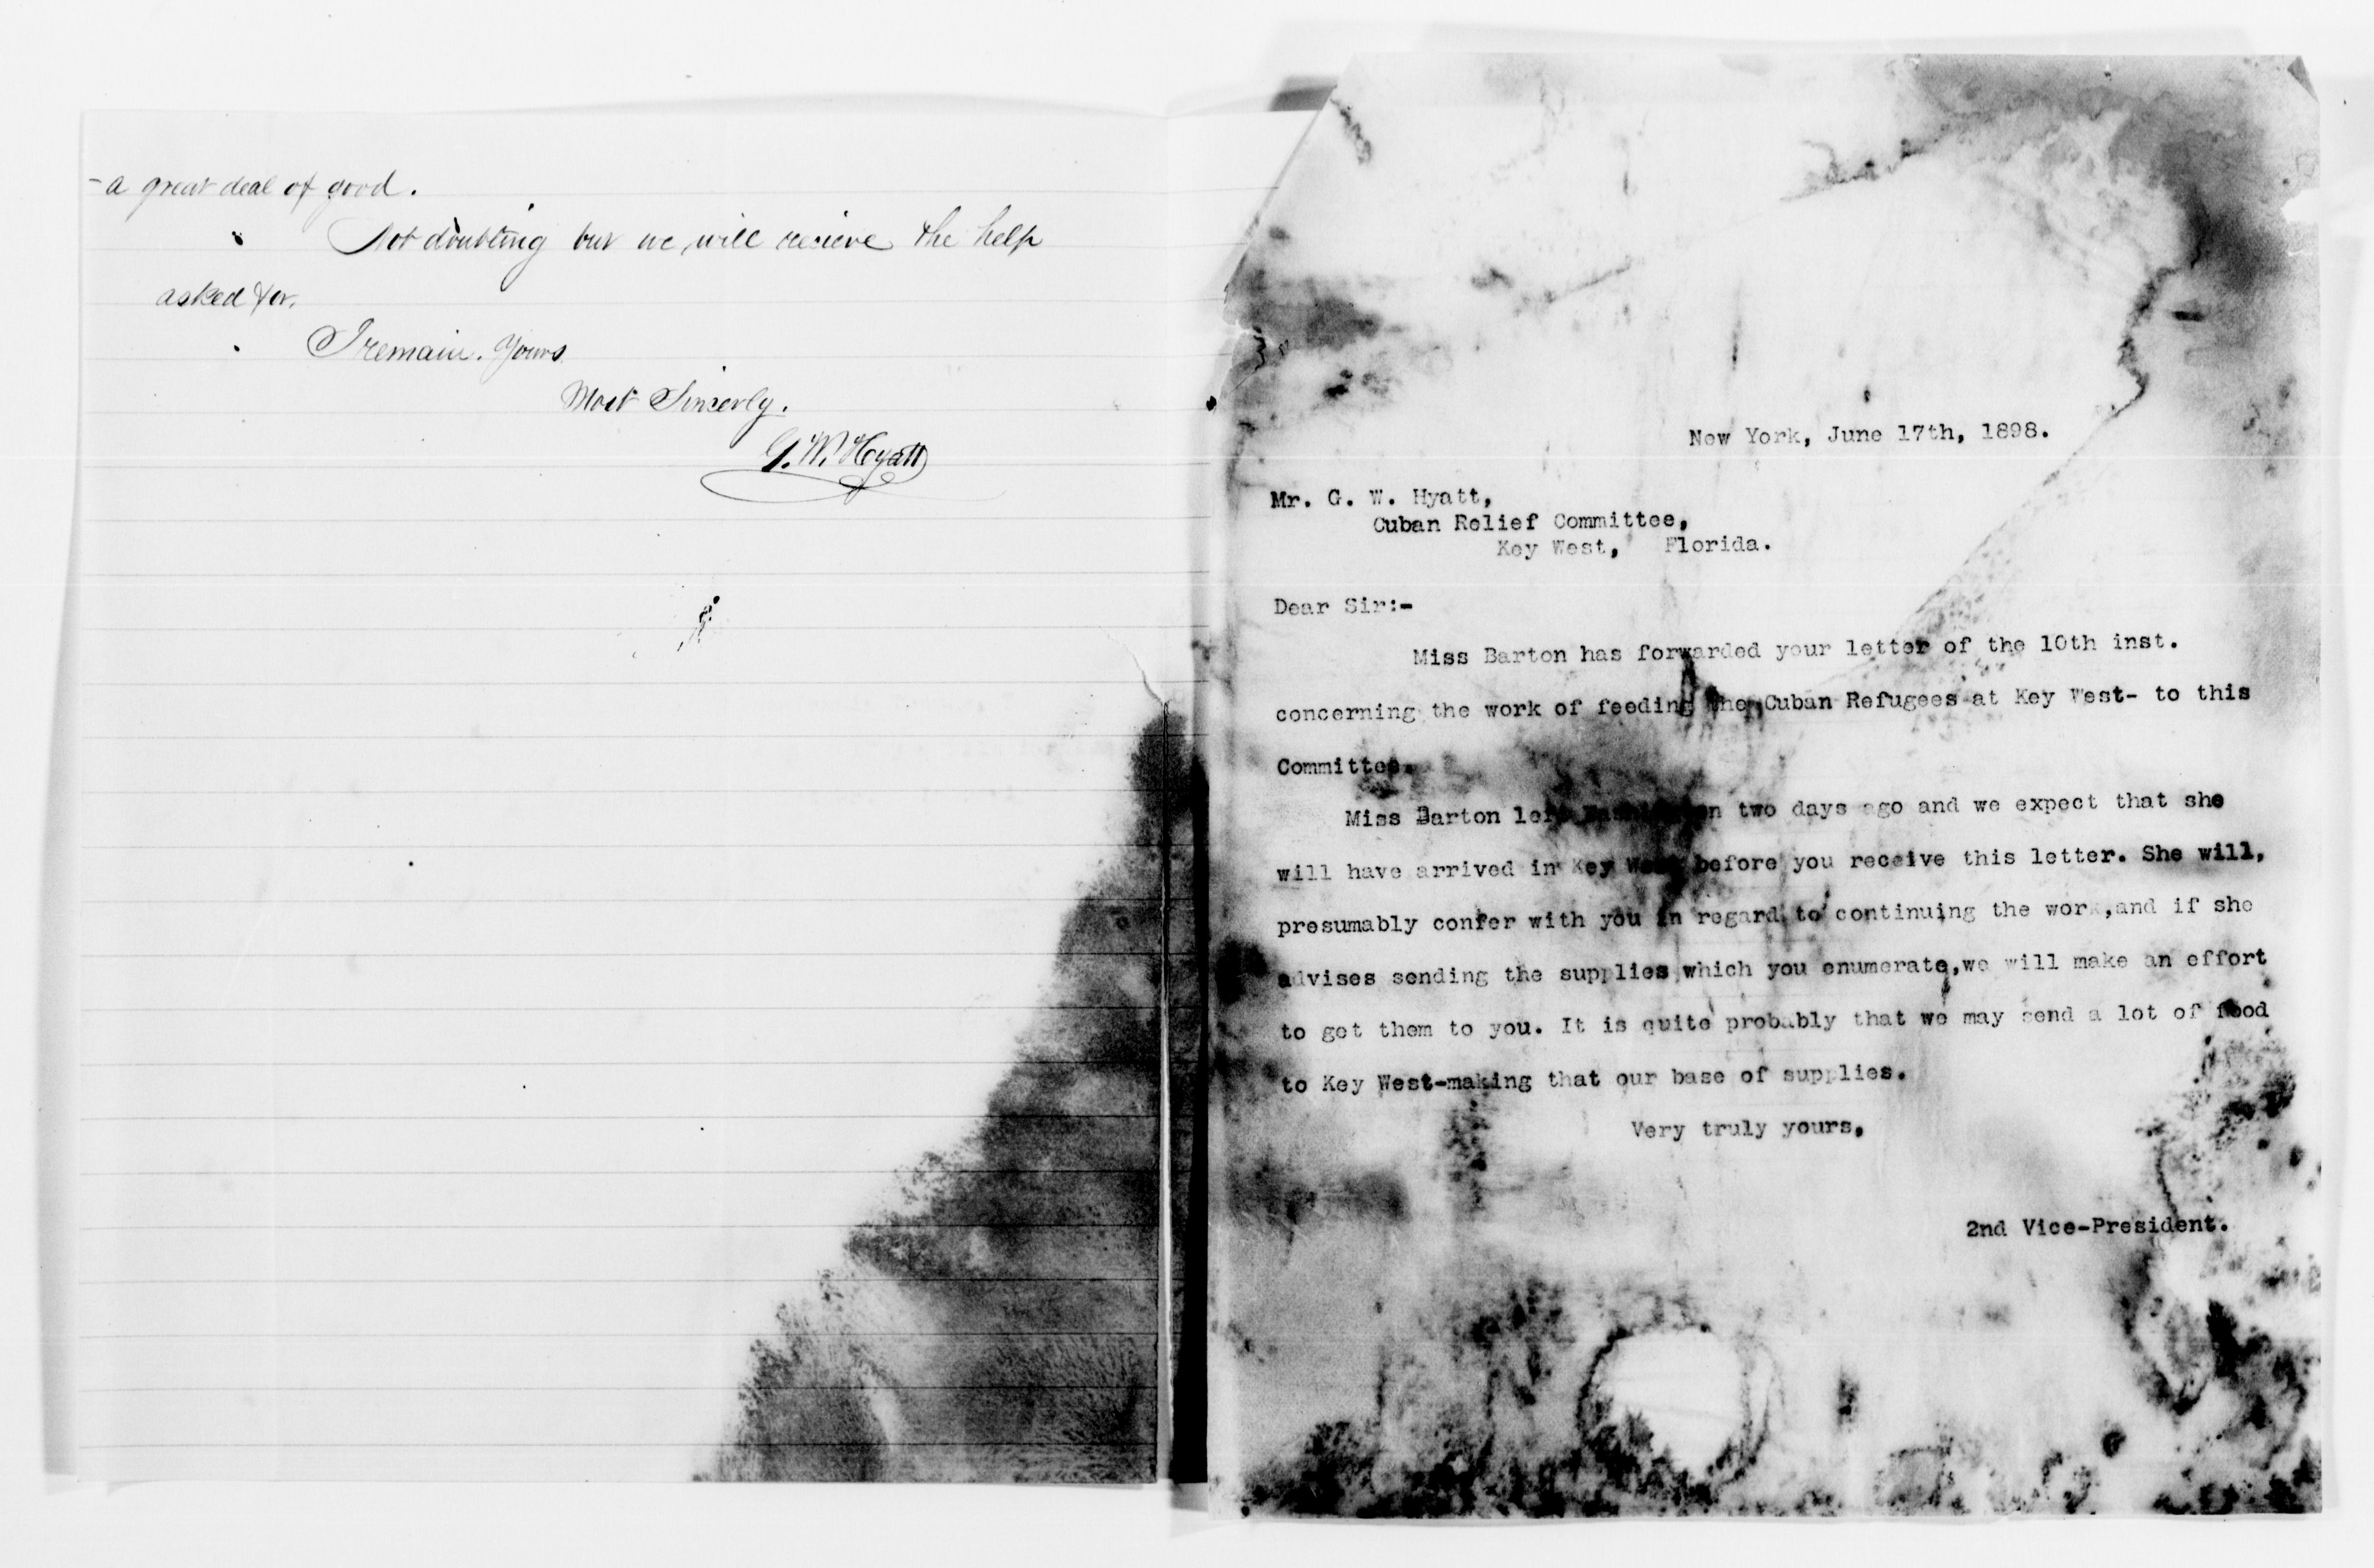 - a great deal of good.
Not doubting but we will recieve the help
asked for.
I remain. Yours
Most Sincerly.
G. W. Hyatt
New York, June 17th, 1898.
Mr. G. W. Hyatt,
Cuban Relief Committee,
Key West, Florida.
Dear Sir:-
Miss Barton has forwarded your letter of the 10th inst.
concerning the work of feeding the Cuban Refugees at Key West- to this
Committee.
Miss Barton left Washington two days ago and we expect that she
will have arrived in Key West before you receive this letter. She will,
presumably confer with you in regard to continuing the work,and if she
advises sending the supplies which you enumerate,we will make an effort
to get them to you. It is quite probably that we may send a lot of food
to Key West-making that our base of supplies.
Very truly yours,
2nd Vice-President.